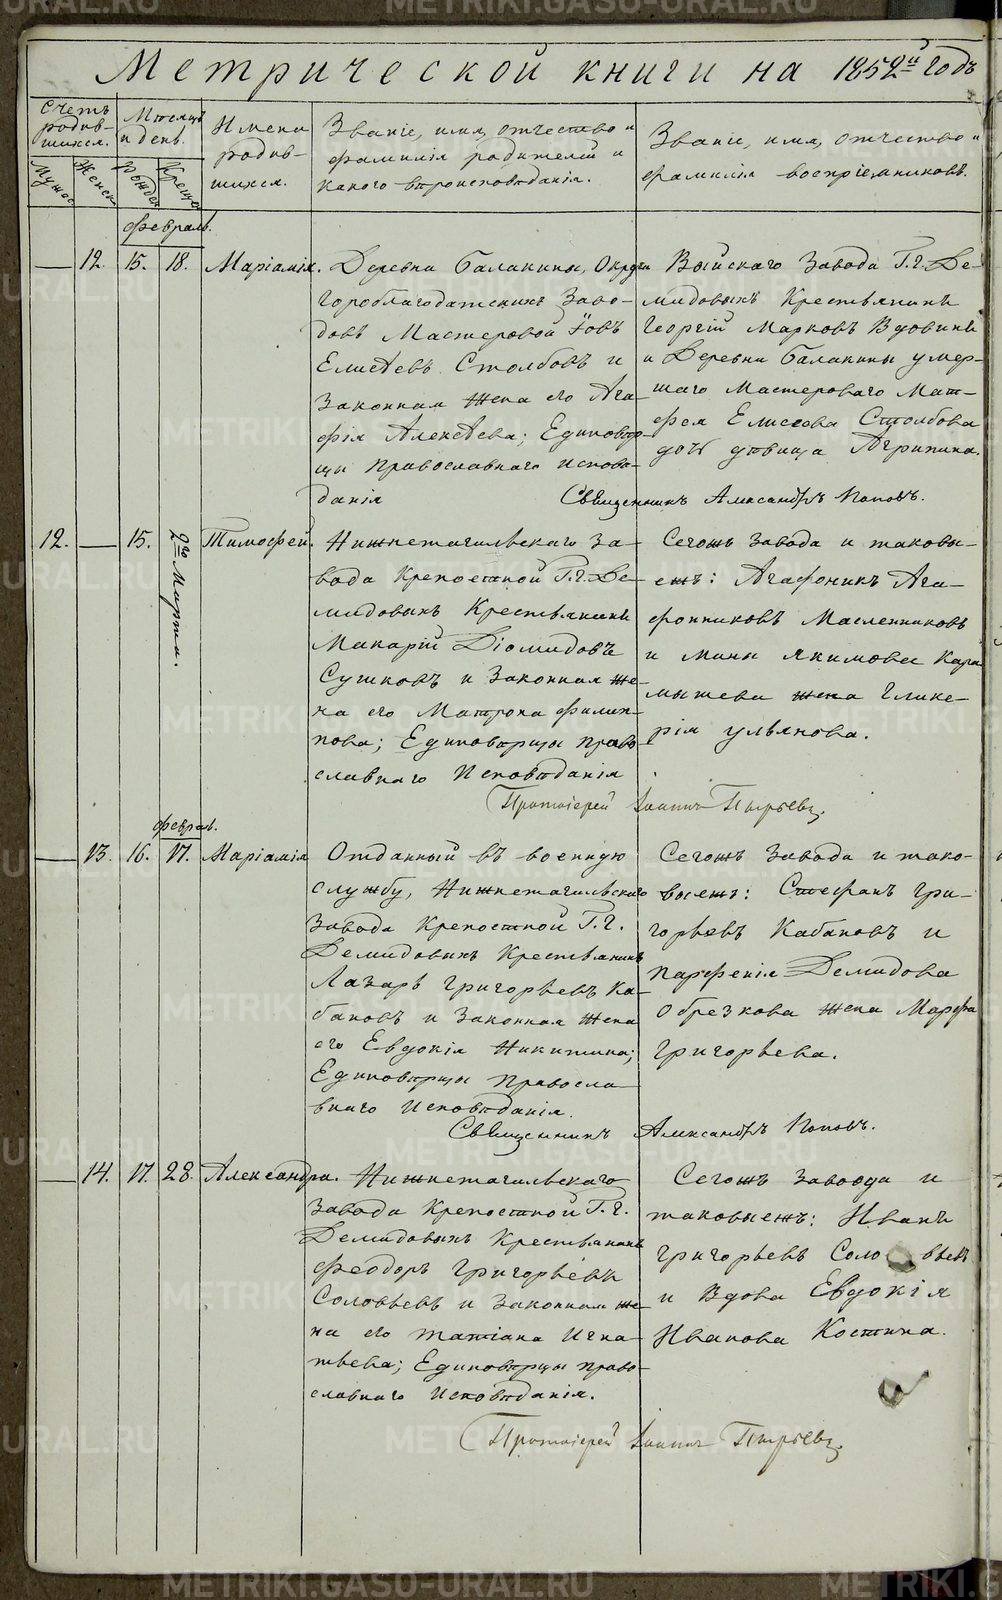 Метрической книги на 1852й годъ
Счетъ родив-шихся.
Мужес
Женск
Месяцъ и день.
Рожден
Крещен
Имена родив-шихся.
Званіе, имя, отчество и
фамилія родителей и
какого вѣроисповѣданія.
Званіе, имя, отчество и
фамилія воспріемниковъ.
Февраль.
12. 15. 18. Маріамія.
Деревни Балакины, Округи
Гороблагодатскихъ Заво-
довъ Мастеровой Іовъ
Елисѣевъ Столбовъ и
Законная Жена его Ага-
фія Алексѣева; Единовѣр-
цы Православнаго Исповѣ-
данія
Выйскаго Завода Г.г. Де-
мидовыхъ Крестьянинъ
Георгій Марковъ Вдовинъ
и Деревни Балакины умер-
шаго Мастероваго Мат-
фея Елисеева Столбова
дочь дѣвица Агрипина.
Священникъ Александръ Поповъ.
12. 15. 2го Марта. Тимофей.
Нижнетагильскаго За-
вода Крепостной Г.г. Де-
мидовыхъ Крестьянинъ
Макарій Діомидовъ
Сушковъ и Законная же-
на его Матрона Филип-
пова; Единовѣрцы Право-
славнаго Исповѣданія
Сегожъ Завода и таковы-
ежъ: Агафоникъ Ага-
фонниковъ Масленниковъ
и Мины Якимова Кара
мышева жена Глике-
рія Ульянова.
Протоіерей Іоаннъ Пырьевъ.
Феврал.
13. 16. 17. Маріамія
Отданный въ военную
службу, Нижнетагильскаго
Завода Крепостной Г.г.
Демидовыхъ Крестьянинъ
Лазарь Григорьевъ Ка-
бановъ и Законная Жена
его Евдокія Никитина;
Единовѣрцы Правосла
внаго Исповѣданія.
Сегожъ Завода и тако-
выежъ: Стефанъ Гри-
горьевъ Кабановъ и
Парфенія Демидова
Обрезкова Жена Марфа
Григорьева.
Священникъ Александръ Поповъ.
14. 17. 28. Александра.
Нижнетагильскаго
Завода Крепостной Г.г.
Демидовыхъ Крестьянинъ
Феодоръ Григорьевъ
Соловьевъ и Законная же-
на его Татіана Игна-
тьева; Единовѣрцы Право-
славнаго Исповѣданія.
Сегожъ Завоода и
таковыежъ: Иванъ
Григорьевъ Соло вьевъ
и Вдова Евдокія
Иванова Костина.
Протоіерей Іоаннъ Пырьевъ.
METRIKI.GASO-URAL.RU